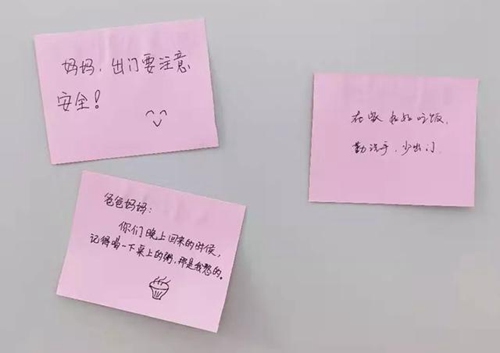 妈妈，出门要注意
安全！
爸爸妈妈：
你们晚上回来的时候，
记得喝一下桌上的粥，那是我熬的。
在家好好吃饭，
勤洗手，少出门。